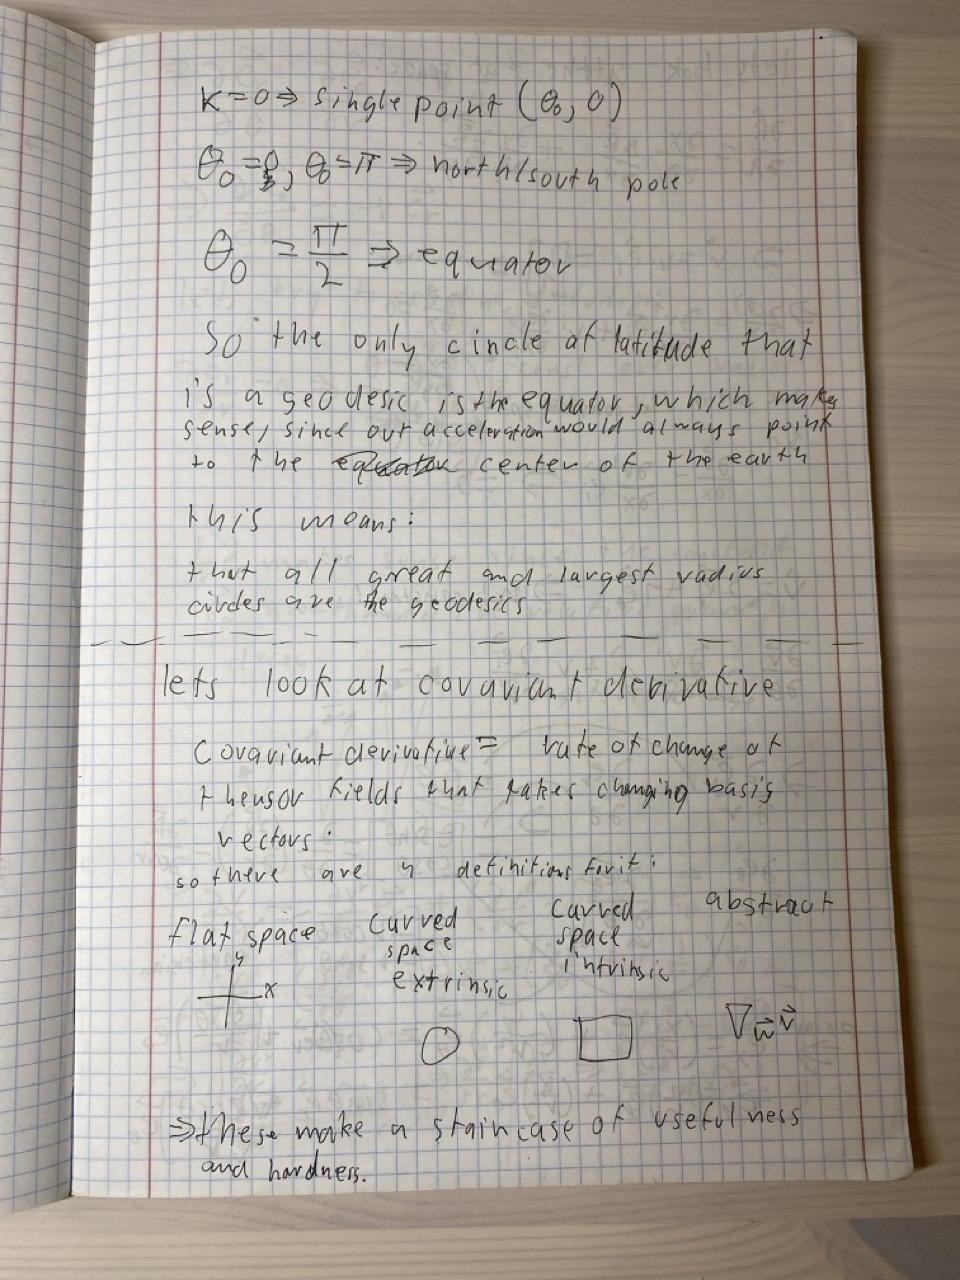 K=0 ⇒ single point (θ₀, 0)
θ₀ = 0, θ₀ = π ⇒ north/south pole
θ₀ = π/2 ⇒ equator
So the only circle of latitude that
is a geodesic is the equator, which makes
sense, since our acceleration would always point
to the center of the earth
this means:
that all great and largest radius
circles are the geodesics
lets look at covariant derivative
Covariant derivative = rate of change of
thensor fields that takes changing basis
vectors.
so there are 4 definitions for it:
flat space curved space extrinsic curved space intrinsic abstract
y
x
∇_w⃗ v⃗
⇒ these make a staircase of usefulness
and hardness.